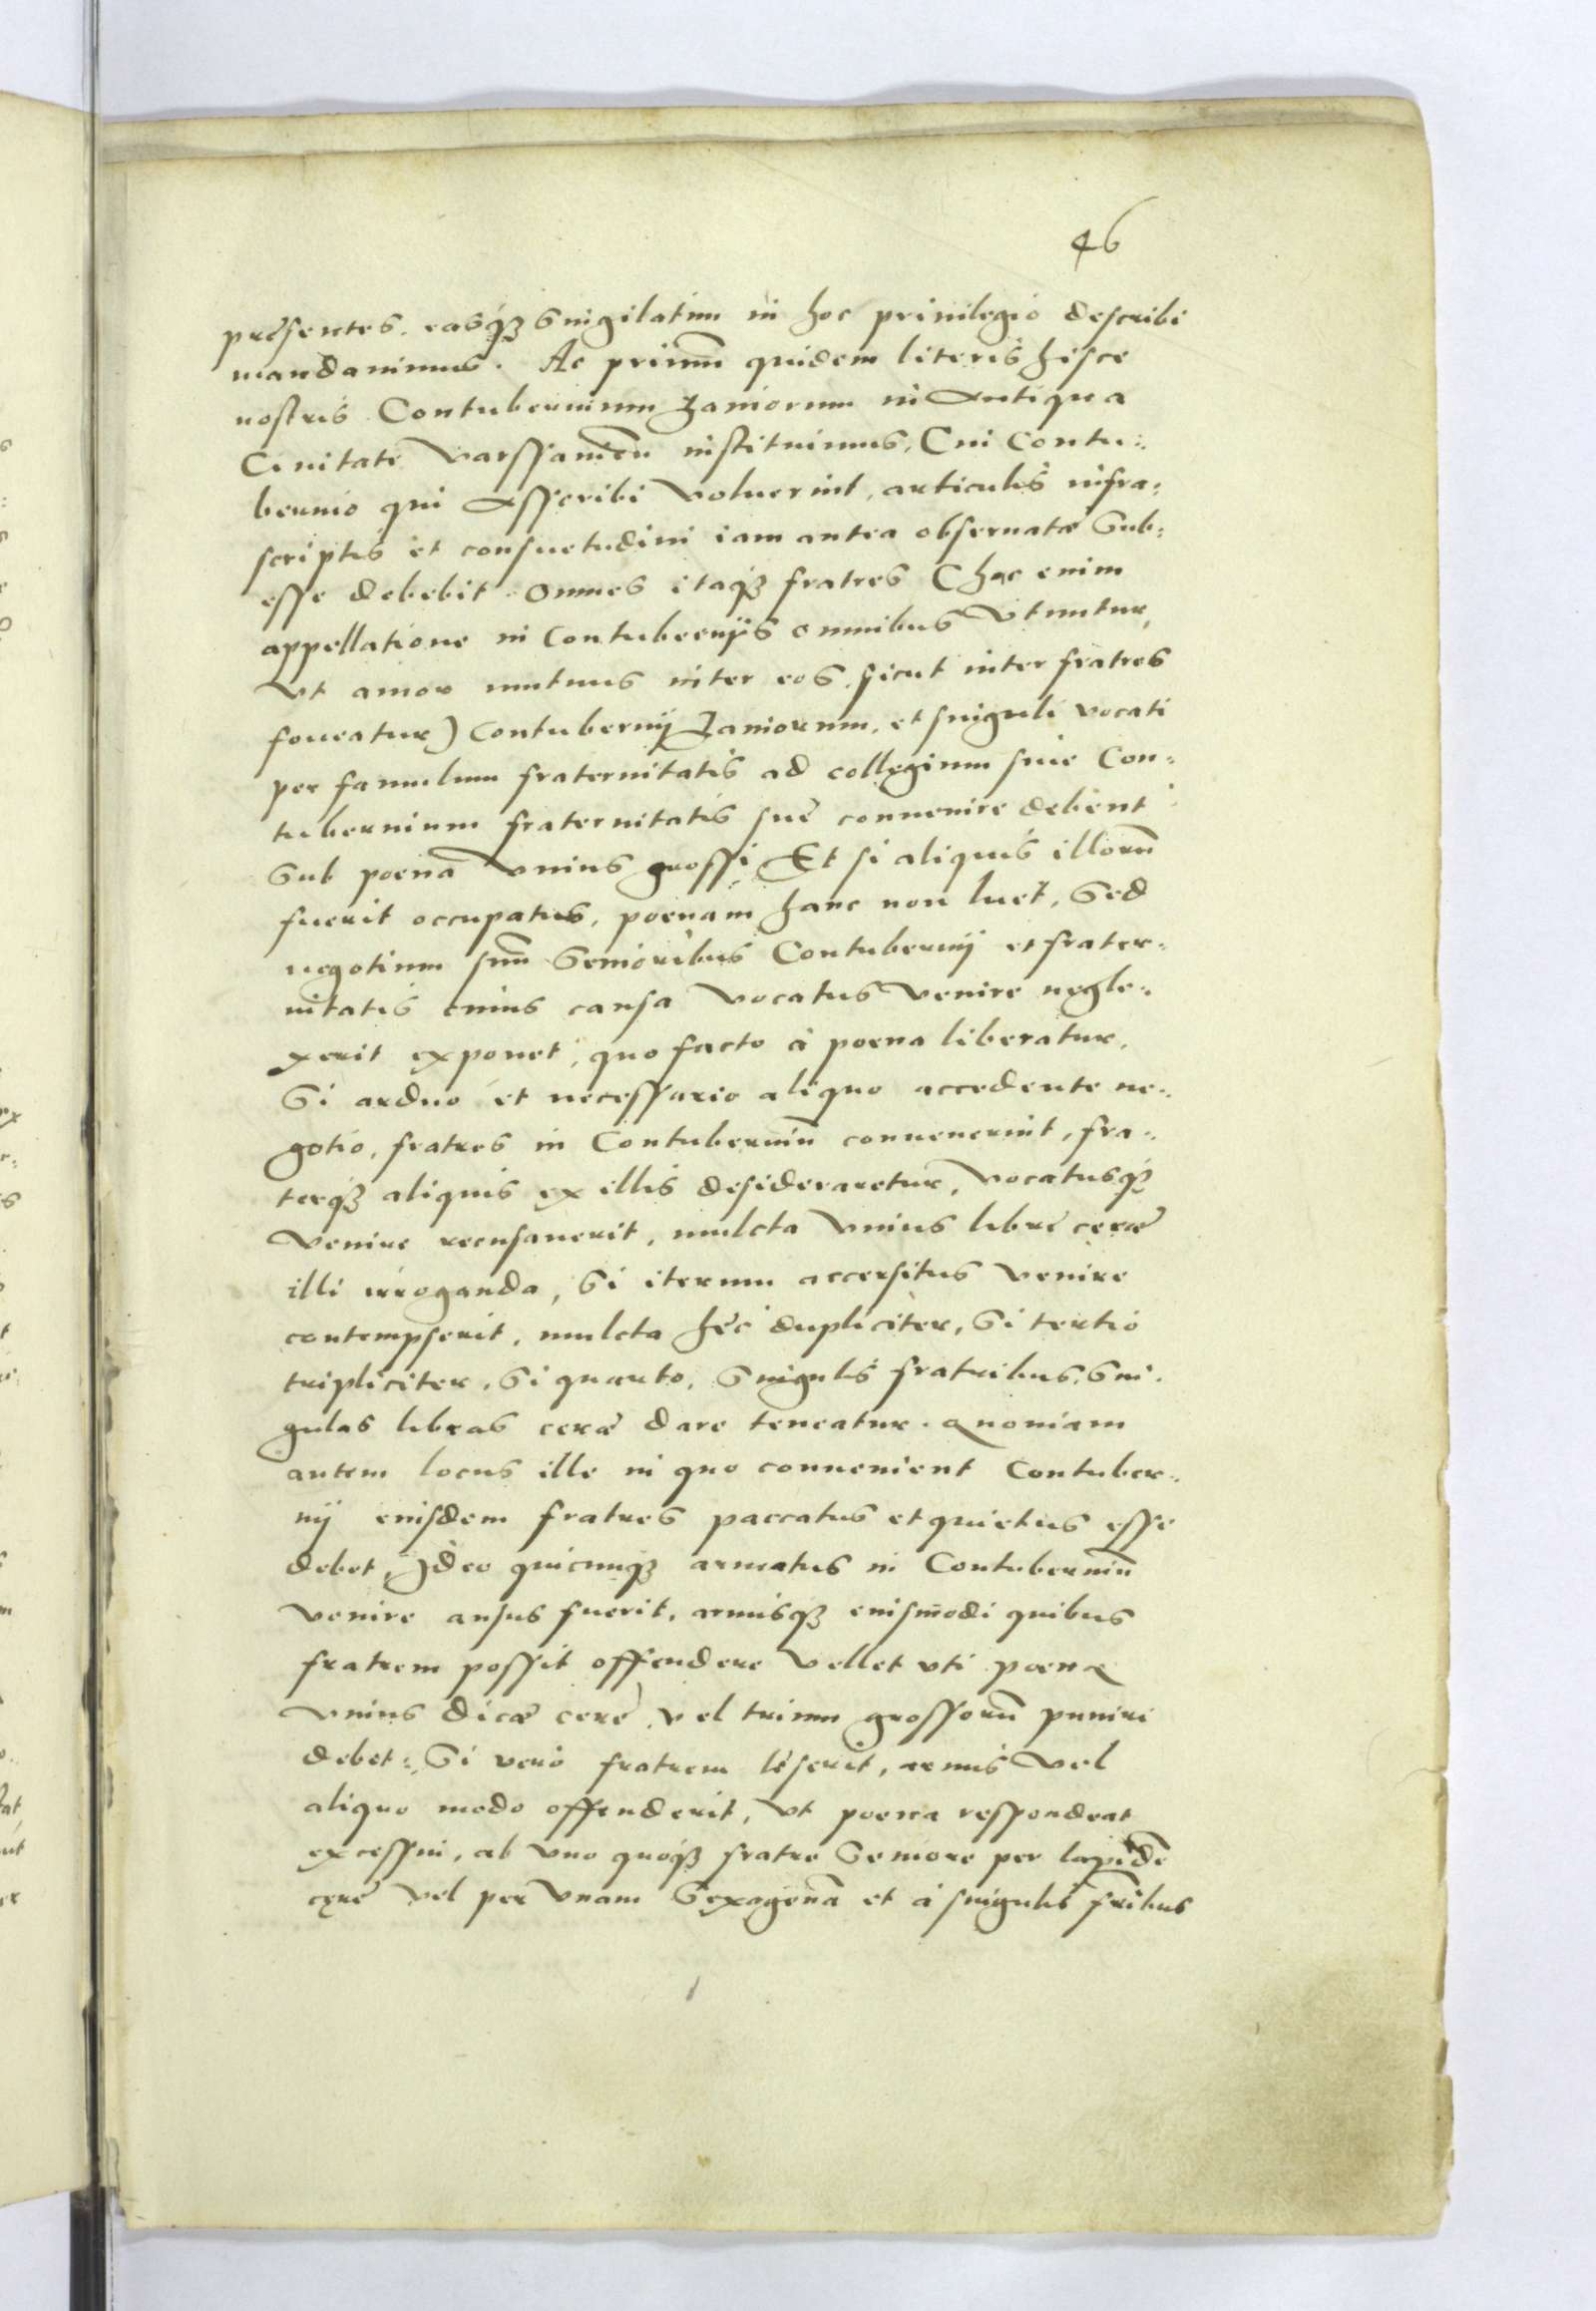 46
presentes. easq́ꝫ singilatim in hoc priuilegio describi
mandauimus. Ac primū quidem literis hisce
nostris Contubernium Laniorum in Antiqua
Ciuitate Varssauien̄ instituimus, Cui Contu:
bernio qui Asscribi voluerint, articulis infra:
scriptis et consuetudini iam antea obseruatæ Sub:
esse debebit. Omnes itaqꝫ fratres (hac enim
appellatione in Contubernijs omnibus vtuntur,
vt amor mutuus inter eos, sicut inter fratres
foueatur) Contubernij Laniorum, et singuli vocati
per famulum fraternitatis ad collegium siue Con:
tubernium fraternitatis suę conuenire debent
Sub poena vnius grossi. Et si aliquis illorū
fuerit occupatus, poenam hanc non luet, Sed
negotium suū Senioribus Contubernij et frater:
nitatis cuius causa vocatus venire negle:
xerit exponet, quo facto à poena liberatur,
Si arduo et necessario aliquo accedente ne:
gotio, fratres in Contuberniū conuenerint, fra:
terqꝫ aliquis ex illis desideraretur, vocatusqꝫ
venire recusauerit, mulcta vnius librę ceræ
illi irroganda, Si iterum accersitus venire
contempserit, mulcta hęc dupliciter, Si tertio
tripliciter, Si quarto, Singulis fratribus, Sin:
gulas libras ceræ dare teneatur. Quoniam
autem locus ille in quo conuenient Contuber:
nij eiusdem fratres paccatus et quietus esse
debet, Ideo quicunqꝫ armatus in Contuberniū
venire ausus fuerit, armisqꝫ eiusmodi quibus
fratrem possit offendere vellet vti poena
vnius dicæ cerę, vel trium grossorū puniri
debet: Si vero fratrem lęserit, armis vel
aliquo modo offenderit, vt poena respondeat
excessui, ab vno quoqꝫ fratre Seniore per lapidē
cerę vel per vnam Sexagenā et à singulis fr̄ibus